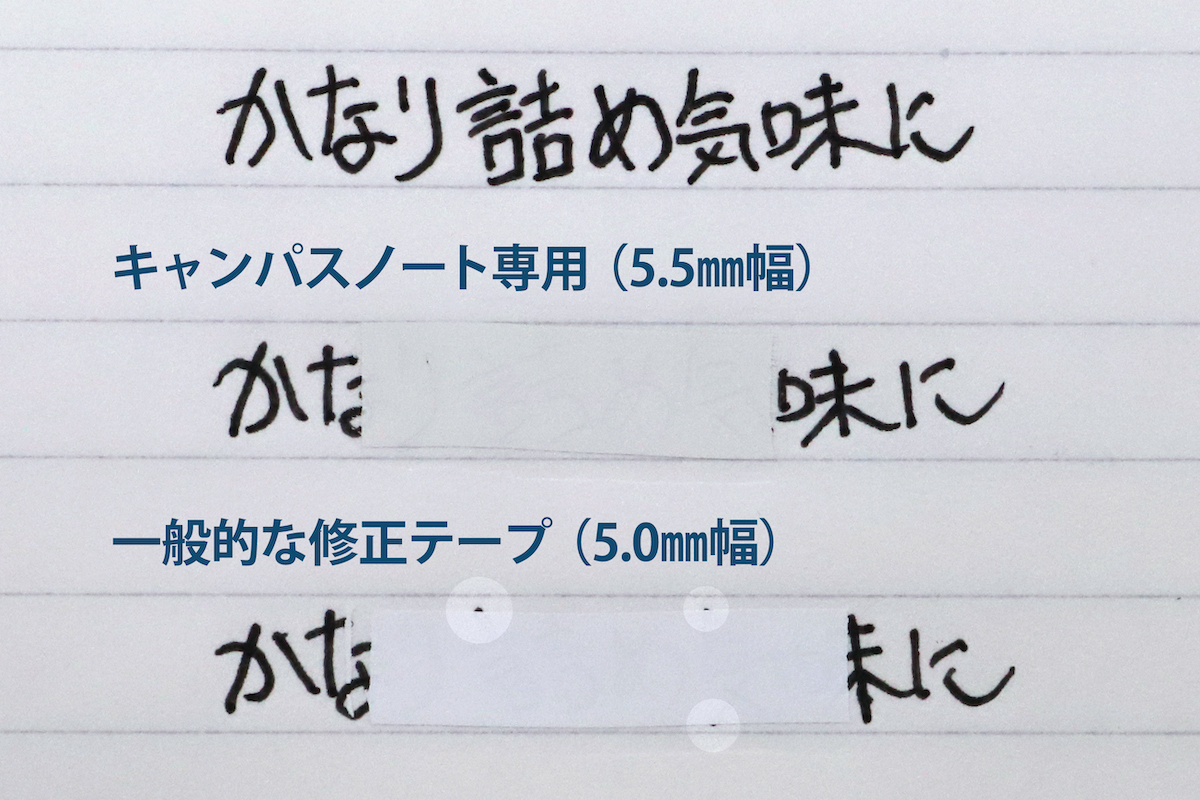 かなり詰め気味に
キャンパスノート専用（5.5㎜幅）
かな 味に
一般的な修正テープ（5.0㎜幅）
かな 味に